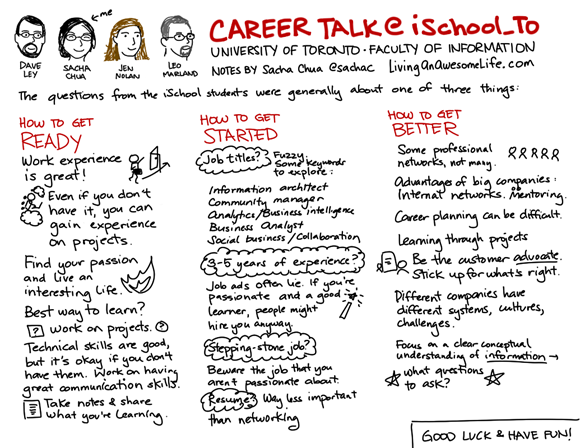 DAVE LEY
SACHA CHUA
← me
JEN NOLAN
LEO MARLAND
CAREER TALK @ iSchool_TO
UNIVERSITY OF TORONTO · FACULTY OF INFORMATION
NOTES BY Sacha Chua @sachac LivingAnAwesomeLife.com
The questions from the iSchool students were generally about one of three things:
HOW TO GET
READY
Work experience
is great!
Even if you don't
have it, you can
gain experience
on projects.
Find your passion
and live an
interesting life.
Best way to learn?
? Work on projects. ?
Technical skills are good,
but it's okay if you don't
have them. Work on having
great communication skills.
Take notes & share
what you're learning.
HOW TO GET
STARTED
Job titles? Fuzzy.
Some keywords
to explore:
Information architect
Community manager
Analytics/Business intelligence
Business Analyst
Social business/Collaboration
3-5 years of experience?
Job ads often lie. If you're
passionate and a good
learner, people might
hire you anyway.
Stepping-stone job?
Beware the job that you
aren't passionate about.
Resume? Way less important
than networking
HOW TO GET
BETTER
Some professional
networks, not many.
Advantages of big companies:
Internal networks. Mentoring.
Career planning can be difficult.
Learning through projects
Be the customer advocate.
Stick up for what's right.
Different companies have
different systems, cultures,
challenges.
Focus on a clear conceptual
understanding of information →
what questions
to ask?
GOOD LUCK & HAVE FUN!